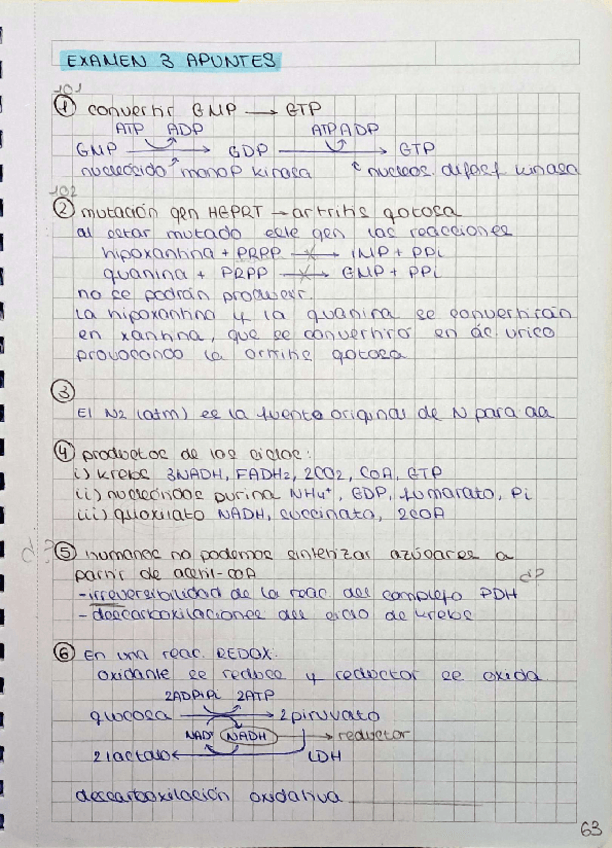 EXAMEN 3 APUNTES
101
① convertir GMP → GTP
ATP ADP ATP ADP
GMP → GDP → GTP
nucleósido monop kinasa nucleos. difosf kinasa
102
② mutación gen HGPRT → artritis gotosa
al estar mutado este gen las reacciones
hipoxantina + PRPP → IMP + PPi
guanina + PRPP → GMP + PPi
no se podrán producir.
La hipoxantina y la guanina se convertirán
en xantina, que se convertirá en ác. úrico
provocando la artritis gotosa
③
El N2 (atm) es la fuente original de N para aa
④ productos de los ciclos:
i) krebs 3NADH, FADH2, 2CO2, CoA, GTP
ii) nucleótidos purina NH4+, GDP, fumarato, Pi
iii) glioxilato NADH, succinato, 2COA
¿?
⑤ humanos no podemos sintetizar azúcares a
partir de acetil-coA
-irreversibilidad de la reac. del complejo PDH ¿?
-descarboxilaciones del ciclo de krebs
⑥ En una reac. REDOX:
oxidante se reduce y reductor se oxida
2ADP+Pi 2ATP
glucosa → 2 piruvato
NAD+ NADH → reductor
2 lactato ← LDH
descarboxilación oxidativa
63